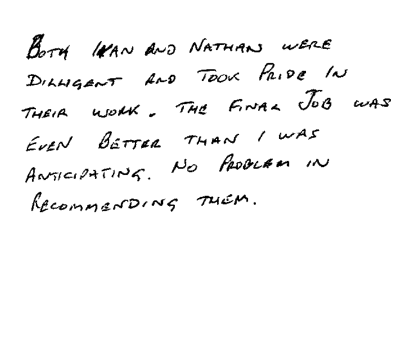 BOTH IVAN AND NATHAN WERE
DILLIGENT AND TOOK PRIDE IN
THEIR WORK. THE FINAL JOB WAS
EVEN BETTER THAN I WAS
ANTICIPATING. NO PROBLEM IN
RECOMMENDING THEM.